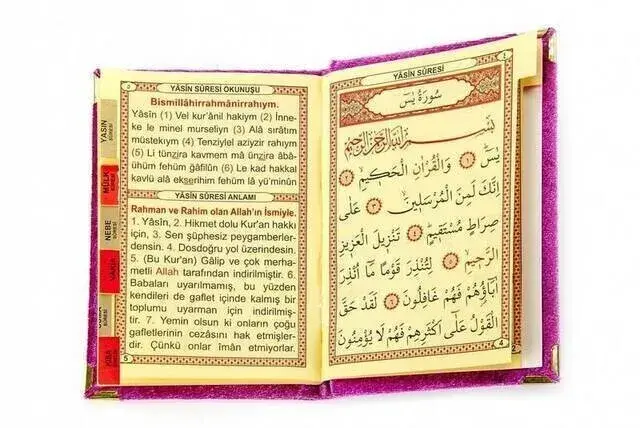 YÂSİN SÛRESİ OKUNUŞU
Bismillâhirrahmânirrahıym.
Yâsîn (1) Vel kur'ânil hakiym (2) İnne-
ke le minel murseliyn (3) Alâ sırâtım
müstekıym (4) Tenziylel aziyzir rahıym
(5) Li tünzira kavmem mâ ünzira âbâ-
ühüm fehüm ğâfilûn (6) Le kad hakkal
kavlü alâ ekserihim fehüm lâ yü'minûn
YÂSİN SÛRESİ ANLAMI
Rahman ve Rahim olan Allah'ın İsmiyle.
1. Yâsîn, 2. Hikmet dolu Kur'an hakkı
için, 3. Sen şüphesiz peygamberler-
densin. 4. Dosdoğru yol üzerindesin.
5. (Bu Kur'an) Gâlip ve çok merha-
metli Allah tarafından indirilmiştir. 6.
Babaları uyarılmamış, bu yüzden
kendileri de gaflet içinde kalmış bir
toplumu uyarman için indirilmiş-
tir. 7. Yemin olsun ki onların çoğu
gafletlerinin cezasını hak etmişler-
dir. Çünkü onlar îman etmiyorlar.
5
YASİN
SÛRESİ
MÜLK
NEBE
YÂSİN SÛRESİ
سُورَةُ يٰسٓ
بِسْمِ اللّٰهِ الرَّحْمٰنِ الرَّحِيمِ
يٰسٓ ﴿١﴾ وَالْقُرْاٰنِ الْحَكِيمِ ﴿٢﴾
اِنَّكَ لَمِنَ الْمُرْسَلِينَ ﴿٣﴾ عَلٰى
صِرَاطٍ مُسْتَقِيمٍ ﴿٤﴾ تَنْزِيلَ الْعَزِيزِ
الرَّحِيمِ ﴿٥﴾ لِتُنْذِرَ قَوْمًا مَٓا اُنْذِرَ
اٰبَٓاؤُهُمْ فَهُمْ غَافِلُونَ ﴿٦﴾ لَقَدْ حَقَّ
الْقَوْلُ عَلٰٓى اَكْثَرِهِمْ فَهُمْ لَا يُؤْمِنُونَ
4
2